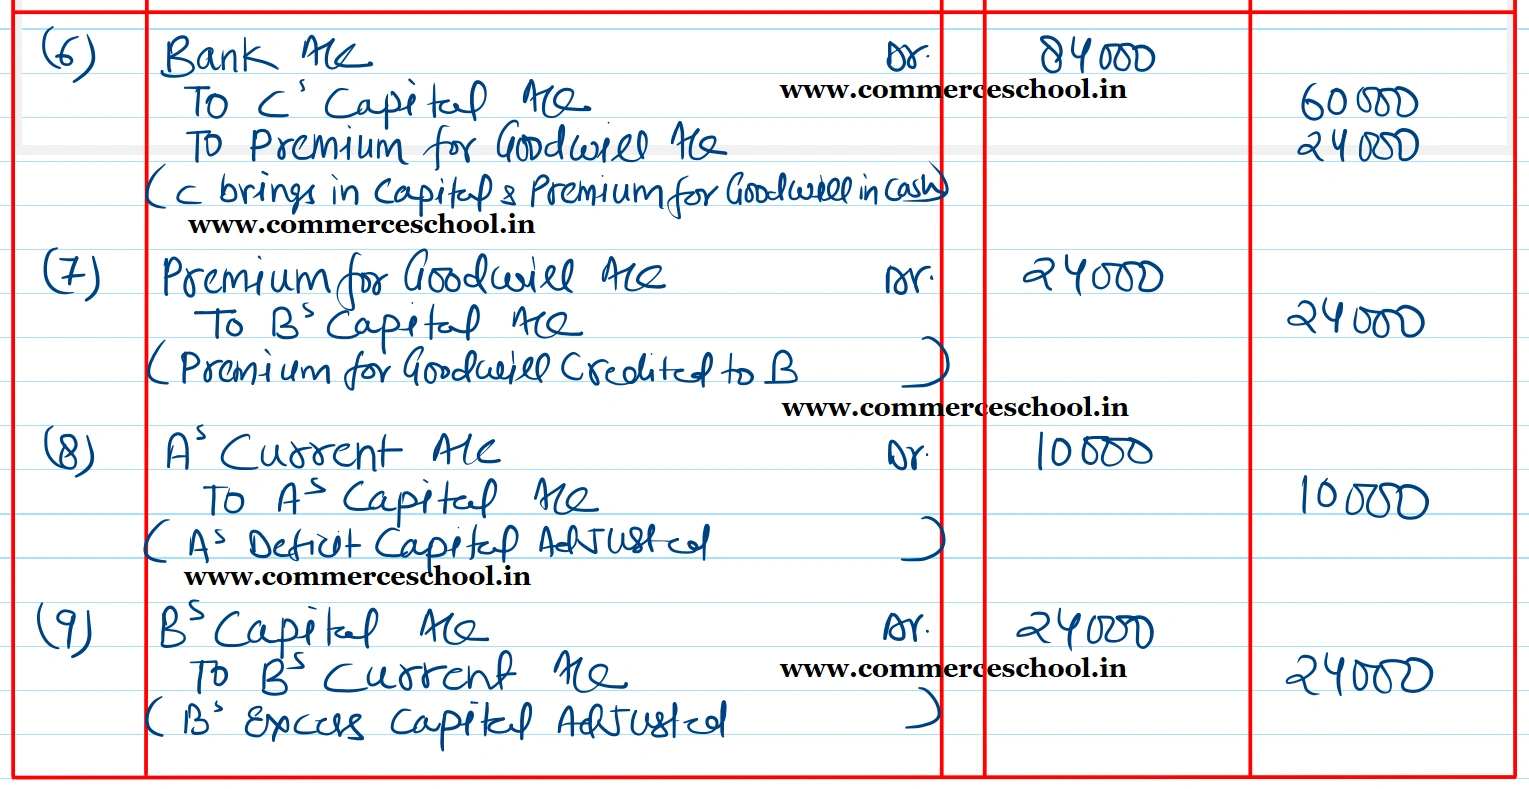 (6) Bank A/c Dr. 84000
www.commerceschool.in
To C's Capital A/c 60000
To Premium for Goodwill A/c 24000
(C brings in Capital & Premium for Goodwill in cash)
www.commerceschool.in
(7) Premium for Goodwill A/c Dr. 24000
To B's Capital A/c 24000
(Premium for Goodwill Credited to B)
www.commerceschool.in
(8) A's Current A/c Dr. 10000
To A's Capital A/c 10000
(A's Deficit Capital Adjusted)
www.commerceschool.in
(9) B's Capital A/c Dr. 24000
www.commerceschool.in
To B's Current A/c 24000
(B's Excess Capital Adjusted)